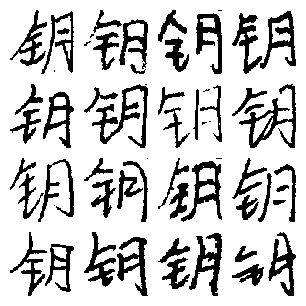 钥钥钥钥
钥钥钥钥
钥钥钥钥
钥钥钥钥